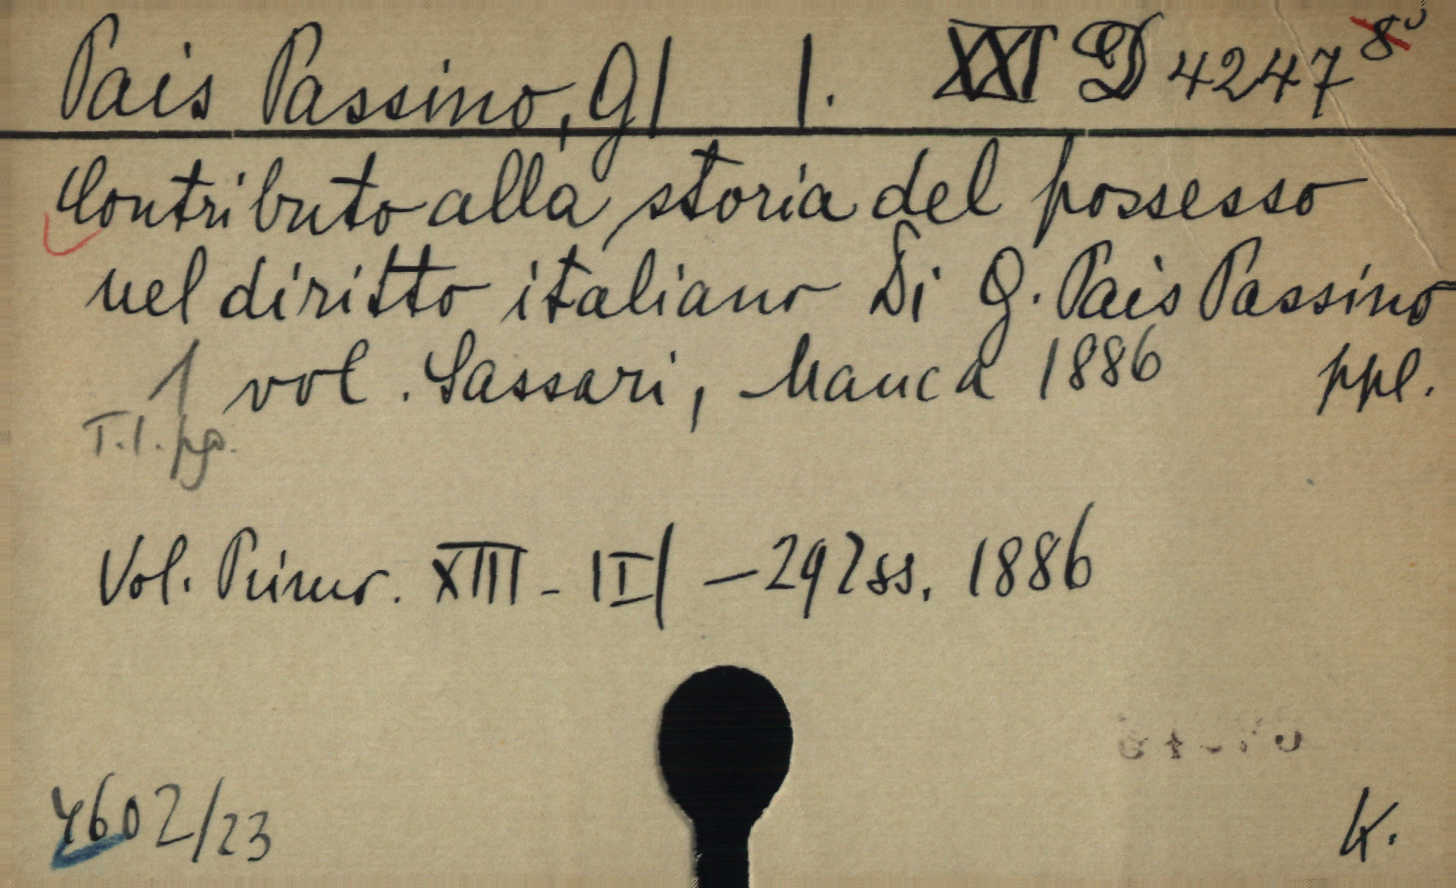 Pais Passino, G| 1. XXI D 4247 8°
Contributo alla storia del possesso
nel diritto italiano Di G. Pais Passino
1 vol. Sassari, Manca 1886 ppl.
T.I. pgo.
Vol. Primo. XIII - 1 I| - 292 ss. 1886
4602/23
K.